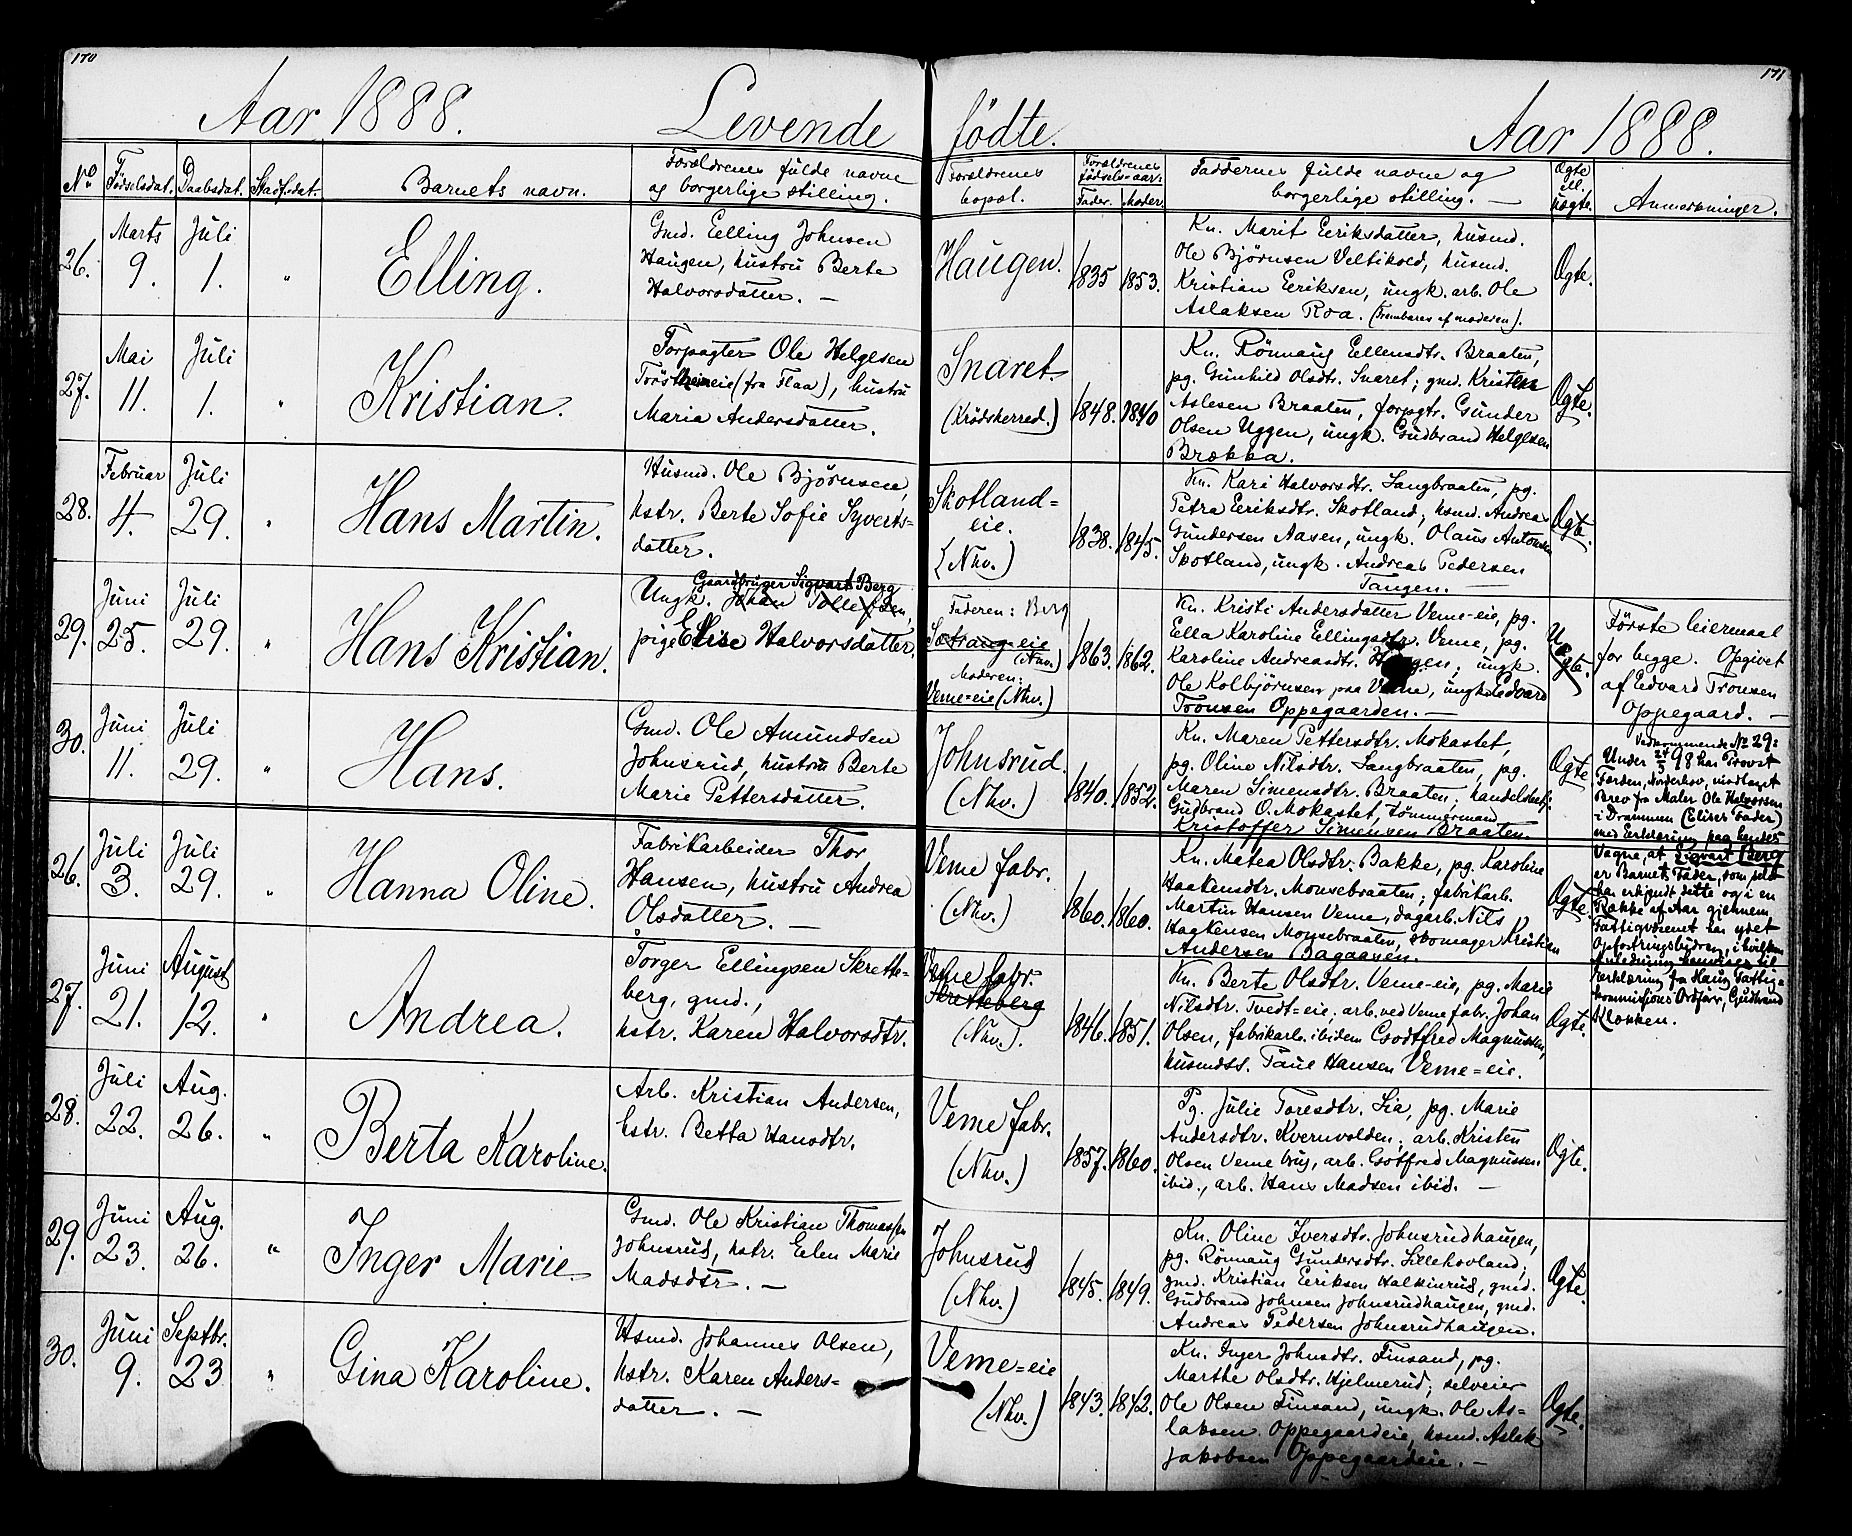 170
171
Aar 1888. Levende fødte. Aar 1888.
No. Fødselsdat. Daabsdat. Stadf.dat. Barnets navn. Forældrenes fulde navne og borgerlige stilling. Forældrenes bopæl. Forældrenes fødselsaar: Fader. Moder. Faddernes fulde navne og borgerlige stilling. — Ægte ell. uægte. Anmerkninger.
26. Marts 9. Juli 1. " Elling.
Gmd. Elling Johnsen
Haugen, hustru Berte
Halvorsdatter. —
Haugen. 1835 1853.
Kn. Marit Eeriksdatter, husmd.
Ole Bjørnsen Veltikold, husmd.
Kristian Eeriksen, ungk. arb. Ole
Aslaksen Roa. (Frembares af moderen).
Ægte.
27. Mai 11. Juli 1. " Kristian.
Forpagter Ole Helgesen
(fra Flaa), hustru
Maria Andersdatter.
Snaret.
(Krødsherred.)
1848. 1840
Kn. Rönnaug Ellensdtr. Braaten,
pg. Gunhild Olsdtr. Snaret; gmd. Kristen
Aslesen Braaten, forpgtr. Gunder
Olsen Uggen, ungk. Gudbrand Helgesen
Brækka.
Ægte.
28. Februar 4. Juli 29. " Hans Martin.
Husmd. Ole Bjørnsen,
hstr. Berte Sofie Syverts=
datter.
Skotland=
eie.
(Nhv.)
1838. 1845.
Kn. Kari Halvorsdtr. Langbraaten, pg.
Petra Eeriksdtr. Skotland; hsmd. Andreas
Gundersen Aasen, ungk. Olaus Antonsen
Skotland, ungk. Andreas Pedersen
Tangen.
Ægte.
29. Juni 25. Juli 29. " Hans Kristian.
Gaardbruger Sigvart Berg
Ungk. Johan Tollefsen,
pige Elise Halvorsdatter.
Faderen: Berg
(Nhv.)
Moderen:
Veme=eie (Nhv.)
1863. 1862.
Kn. Kristi Andersdatter Veme=eie, pg.
Ella Karoline Ellingsdtr. Veme, pg.
Karoline Andreasdtr. Haugen; ungk.
Ole Kolbjørnsen, paa Veme, ungk. Edvard
Tronsen Oppegaarden. —
Uægte.
Første leiermaal
for begge. Opgivet
af Edvard Tronsen
Oppegaard. —
30. Juni 11. Juli 29. " Hans.
Gmd. Ole Amundsen
Johnsrud, hustru Berte
Marie Pettersdatter.
Johnsrud.
(Nhv.)
1840. 1852.
Kn. Maren Pettersdtr. Mokastet,
pg. Oline Nilsdtr. Langbraaten, pg.
Maren Simensdtr. Braaten; handelsbetj.
Gudbrand O. Mokastet, tömmermand
Kristoffer Simensen Braaten.
Ægte
Vedkommende No 29:
Under 24/3 98 har Provst
Farden, Norderhov, modtaget
Brev fra Maler Ole Halvorsen
i Drammen (Elises Fader)
med Erklæring paa hendes
Vegne, at Sigvart Berg
er Barnets Fader, som selv
har erkjendt dette og i en
Række af Aar gjennem
Fattigvæsenet har ydet
Opfostringsbidrag, i hvilken
Anledning henvises til
Erklæring fra Haug Fattig=
kommissions Ordfører, Gudbrand
Klokken.
26. Juli 3. Juli 29. " Hanna Oline.
Fabrikarbeider Thor
Hansen, hustru Andrea
Olsdatter. —
Veme fabr.
(Nhv.)
1860. 1860.
Kn. Matea Olsdtr. Bakke, pg. Karoline
Haakensdtr. Mousebraaten; fabrikarb.
Martin Hansen Veme, dagarb. Nils
Haakensen Mousebraaten, skomager Kristian
Andersen Bagaasen.
Ægte.
27. Juni 21. August 12. " Andrea.
Torger Ellingsen Skretts=
berg, gmd.,
hstr. Karen Halvorsdtr.
Veme fabr.
Skrettsberg
(Nhv.).
1846. 1851.
Kn. Berte Olsdtr. Veme=eie, pg. Marie
Nilsdtr. Tvedt=eie; arb. ved Veme fabr. Johan
Olsen, fabrikarb. ibidem Godtfred Magnussen,
husmdss. Paul Hansen Veme=eie.
Ægte.
28. Juli 22. Aug. 26. " Berta Karoline.
Arb. Kristian Andersen,
hstr. Betta Hansdtr.
Veme fabr.
(Nhv.)
1857. 1860.
Pg. Julie Toresdtr. Lia, pg. Marie
Andersdtr. Kvernvolden; arb. Kristen
Olsen Veme brug, arb. Gotfred Magnussen
ibid., arb. Hans Madsen ibid. —
Ægte.
29. Juni 23. Aug. 26. " Inger Marie.
Gmd. Ole Kristian Thomassen
Johnsrud, hstr. Elen Marie
Madsdtr. —
Johnsrud
(Nhv.)
1845. 1849.
Kn. Oline Iversdtr. Johnsrudhaugen,
pg. Rönnaug Gundersdtr. Lillehovland;
gmd. Kristian Eeriksen Halkinrud, gmd.
Gudbrand Johnsen Johnsrudhaugen, gmd.
Andreas Pedersen Johnsrudhaugen.
Ægte.
30. Juni 9. Septbr. 23 " Gina Karoline.
Hsmd. Johannes Olsen,
hstr. Karen Anders=
datter. —
Veme=eie
(Nhv.)
1843. 1842.
Kn. Inger Johnsdtr. Finsand, pg.
Marthe Olsdtr. Hjelmerud; selveier
Ole Olsen Finsand, ungk. Ole As=
laksen Oppegaardeie, hsmd. Aslak
Jakobsen Oppegaardeie. —
Ægte.